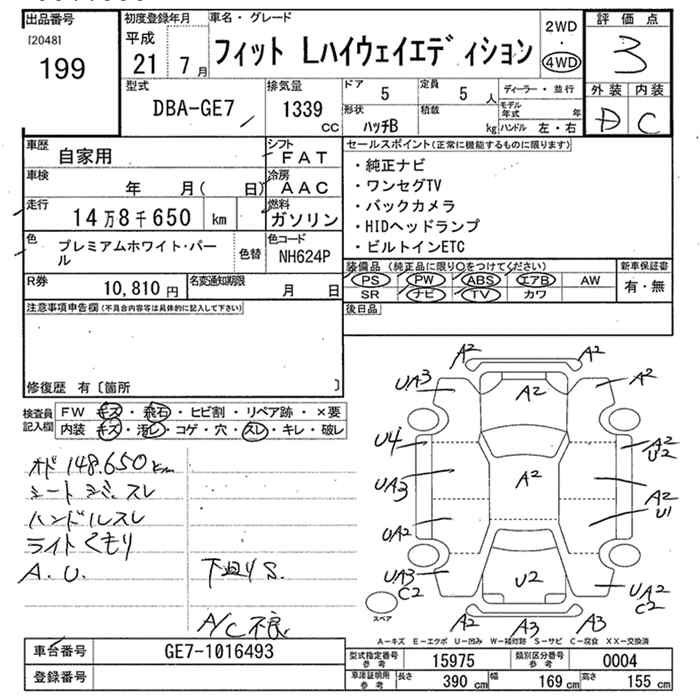 出品番号
[2048]
199
初度登録年月
平成
21 7月
車名・グレード
フィット Lハイウェイエディション
2WD
・
4WD
評価点
3
外装 内装
D C
型式
DBA-GE7
排気量
1339
cc
ドア
5
定員
5人
形状
ハッチB
積載
kg
ディーラー・並行
モデル年式 年
ハンドル 左・右
車歴
自家用
シフト
FAT
車検
年 月( 日)
冷房
AAC
走行
14万8千650 km
燃料
ガソリン
色
プレミアムホワイト・パール
色替
色コード
NH624P
R券
10,810 円
名変通知期限
月 日
セールスポイント(正常に機能するものに限ります)
・純正ナビ
・ワンセグTV
・バックカメラ
・HIDヘッドランプ
・ビルトインETC
装備品 (純正品に限り○をつけてください)
PS PW ABS エアB AW
SR ナビ TV カワ
新車保証書
有・無
後日品
注意事項申告欄(不具合内容等は具体的に記入して下さい)
修復歴 有〔箇所 〕
検査員記入欄
FW キズ・飛石・ヒビ割・リペア跡・×要
内装 キズ・汚レ・コゲ・穴・スレ・キレ・破レ
オド 148.650 km
シートシミ、スレ
ハンドルスレ
ライトくもり
A.U.
下廻りS.
A/C不良
A2 A2
UA3 A2 A2
U4 A2 U2
UA3 A2 A2 U1
UA2
UA3 C2 U2 UA2 C2
スペア
A2 A3 A3
A-キズ E-エクボ U-凹み W-補修跡 S-サビ C-腐食 XX-交換済
車台番号
GE7-1016493
登録番号
型式指定番号 参考
15975
類別区分番号 参考
0004
車庫証明用 参考
長さ 390 cm
幅 169 cm
高さ 155 cm